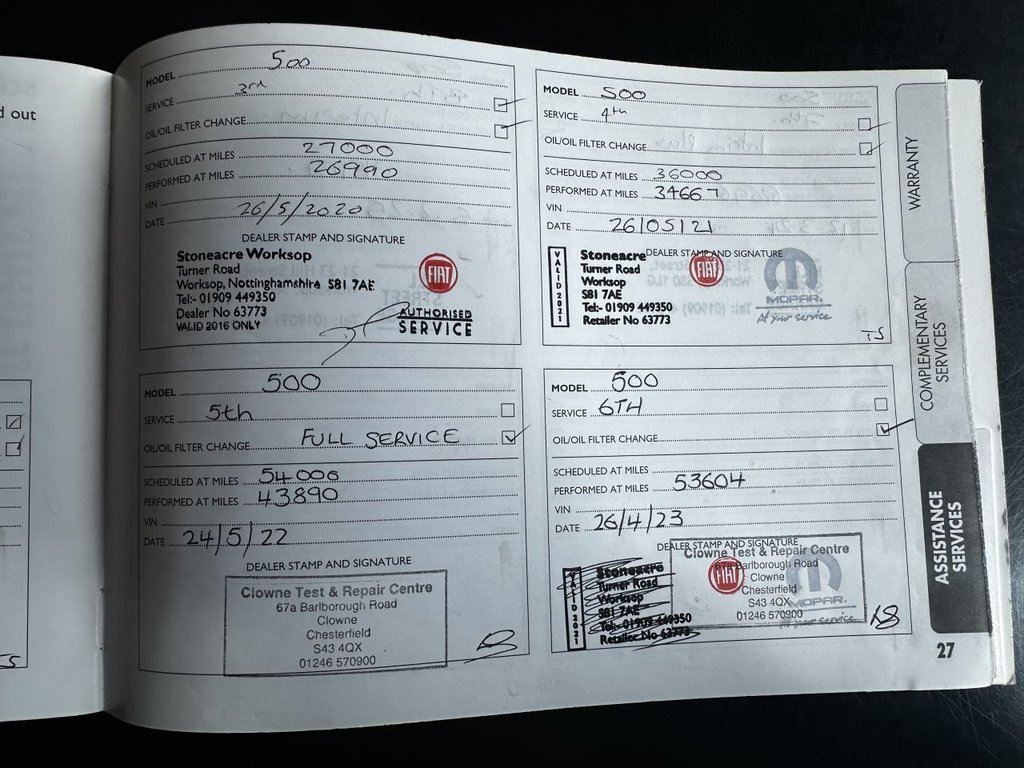 d out
MODEL 500
SERVICE 3rd
OIL/OIL FILTER CHANGE
SCHEDULED AT MILES 27000
PERFORMED AT MILES 26990
VIN
DATE 26/5/2020
DEALER STAMP AND SIGNATURE
Stoneacre Worksop
Turner Road
Worksop, Nottinghamshire S81 7AE
Tel:- 01909 449350
Dealer No 63773
VALID 2016 ONLY
FIAT
AUTHORISED
SERVICE
MODEL 500
SERVICE 4th
OIL/OIL FILTER CHANGE
SCHEDULED AT MILES 36000
PERFORMED AT MILES 34667
VIN
DATE 26/05/21
DEALER STAMP AND SIGNATURE
VALID 2021
Stoneacre
Turner Road
Worksop
S81 7AE
Tel:- 01909 449350
Retailer No 63773
FIAT
MOPAR.
At your service
TS
MODEL 500
SERVICE 5th
OIL/OIL FILTER CHANGE FULL SERVICE
SCHEDULED AT MILES 54000
PERFORMED AT MILES 43890
VIN
DATE 24/5/22
DEALER STAMP AND SIGNATURE
Clowne Test & Repair Centre
67a Barlborough Road
Clowne
Chesterfield
S43 4QX
01246 570900
MODEL 500
SERVICE 6TH
OIL/OIL FILTER CHANGE
SCHEDULED AT MILES
PERFORMED AT MILES 53604
VIN
DATE 26/4/23
DEALER STAMP AND SIGNATURE
VALID 2021
Stoneacre
Turner Road
Worksop
S81 7AE
Tel:- 01909 449350
Retailer No 63773
FIAT
MOPAR.
At your service
Clowne Test & Repair Centre
67a Barlborough Road
Clowne
Chesterfield
S43 4QX
01246 570900
WARRANTY
COMPLEMENTARY
SERVICES
ASSISTANCE
SERVICES
27